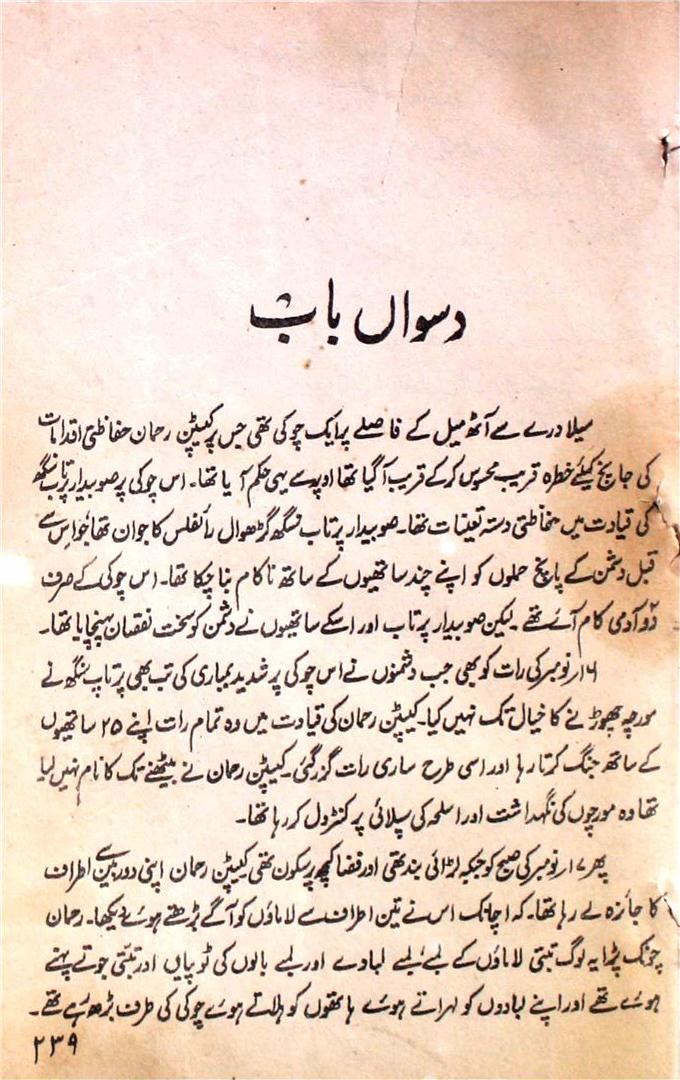 دسواں باب
میلا درے سے آٹھ میل کے فاصلے پر ایک چوکی تھی جس پر کیپٹن رحمان حفاظتی اقدامات
کی جانچ کیلئے خطرہ قریب محسوس کر کے قریب آ گیا تھا اوپر سے یہی حکم آیا تھا۔ اس چوکی پر صوبیدار پرتاب سنگھ
کی قیادت میں حفاظتی دستہ تعینات تھا۔ صوبیدار پرتاب سنگھ گڑھوال رائفلس کا جوان تھا جو اس سے
قبل دشمن کے پانچ حملوں کو اپنے چند ساتھیوں کے ساتھ ناکام بنا چکا تھا۔ اس چوکی کے صرف
دو آدمی کام آئے تھے۔ لیکن صوبیدار پرتاب اور اسکے ساتھیوں نے دشمن کو سخت نقصان پہنچایا تھا۔
۱۶ر نومبر کی رات کو بھی جب دشمنوں نے اس چوکی پر شدید بمباری کی تب بھی پرتاپ سنگھ نے
مورچہ چھوڑنے کا خیال تک نہیں کیا۔ کیپٹن رحمان کی قیادت میں وہ تمام رات اپنے ۲۵ ساتھیوں
کے ساتھ جنگ کرتا رہا اور اسی طرح ساری رات گزر گئی۔ کیپٹن رحمان نے بیٹھنے تک کا نام نہیں لیا
تھا وہ مورچوں کی نگہداشت اور اسلحہ کی سپلائی پر کنٹرول کر رہا تھا۔
پھر ۱۷ر نومبر کی صبح کو جبکہ لڑائی بند تھی اور فضا کچھ پرسکون تھی کیپٹن رحمان اپنی دوربین سے اطراف
کا جائزہ لے رہا تھا۔ کہ اچانک اس نے تین اطراف سے لاماؤں کو آگے بڑھتے ہوئے دیکھا۔ رحمان
چونک پڑا یہ لوگ تبتی لاماؤں کے لمبے لمبے لبادے اور لمبے بالوں کی ٹوپیاں اور تبتی جوتے پہنے
ہوئے تھے اور اپنے لبادوں کو لہراتے ہوئے ہاتھوں کو ہلاتے ہوئے چوکی کی طرف بڑھ رہے تھے۔
۲۳۹